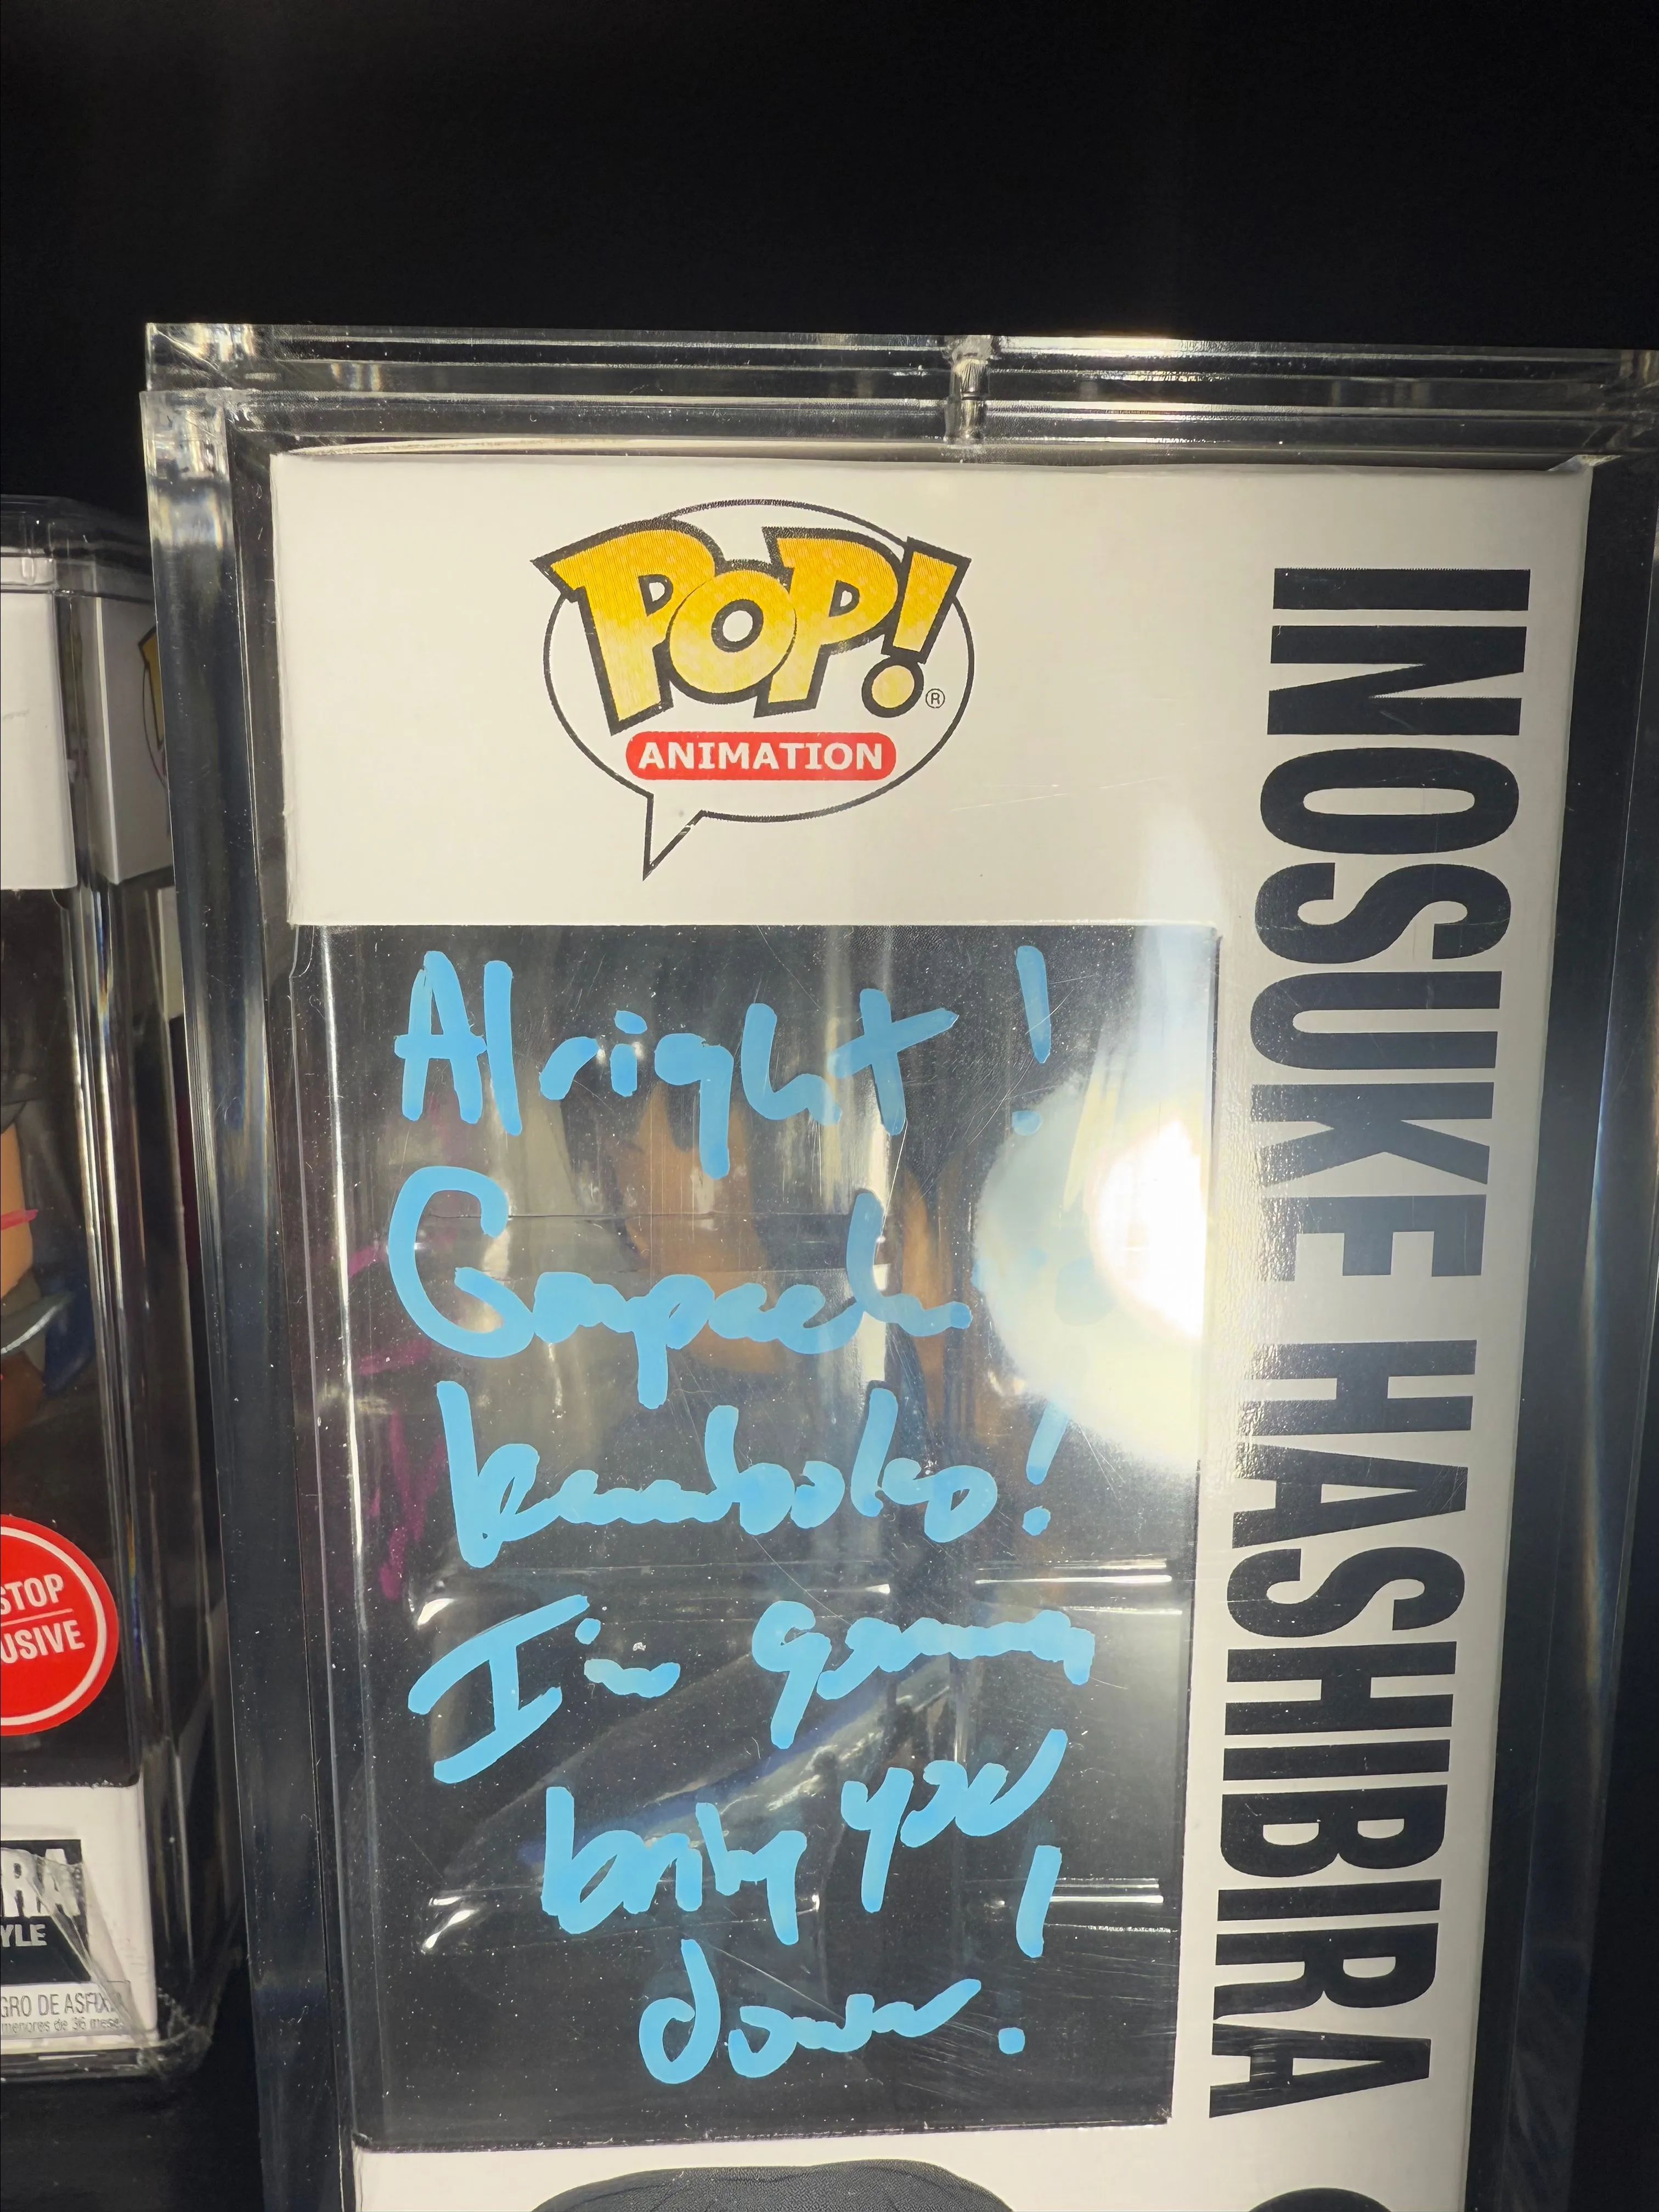 POP!
®
ANIMATION
INOSUKE HASHIBIRA
Alright!
Gonpachiro
kamaboko!
I'm gonna
bring you
down!
STOP
USIVE
RA
YLE
GRO DE ASFIX
menores de 36 mese